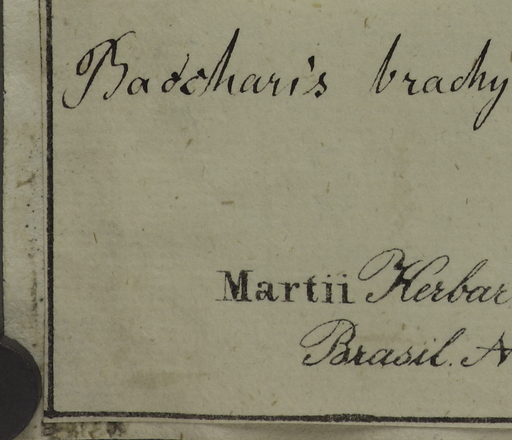 Bacoharis brachy
Martii Herbar
Brasil. A